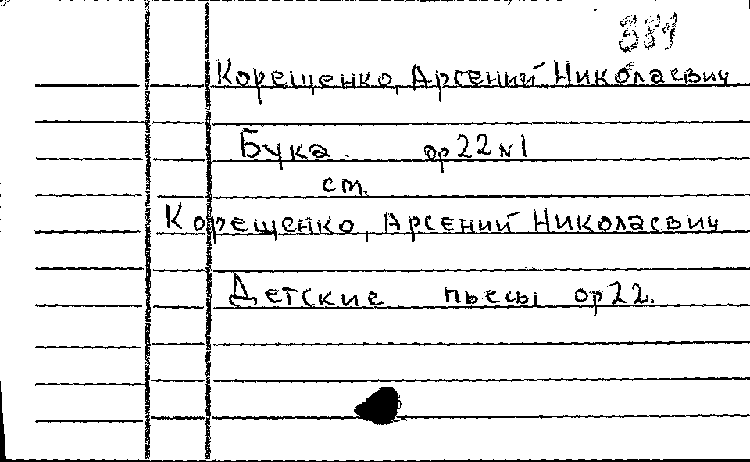 381
Корещенко, Арсений Николаевич
Бука. ор 22 №1
см.
Корещенко, Арсений Николаевич
Детские пьесы ор 22.